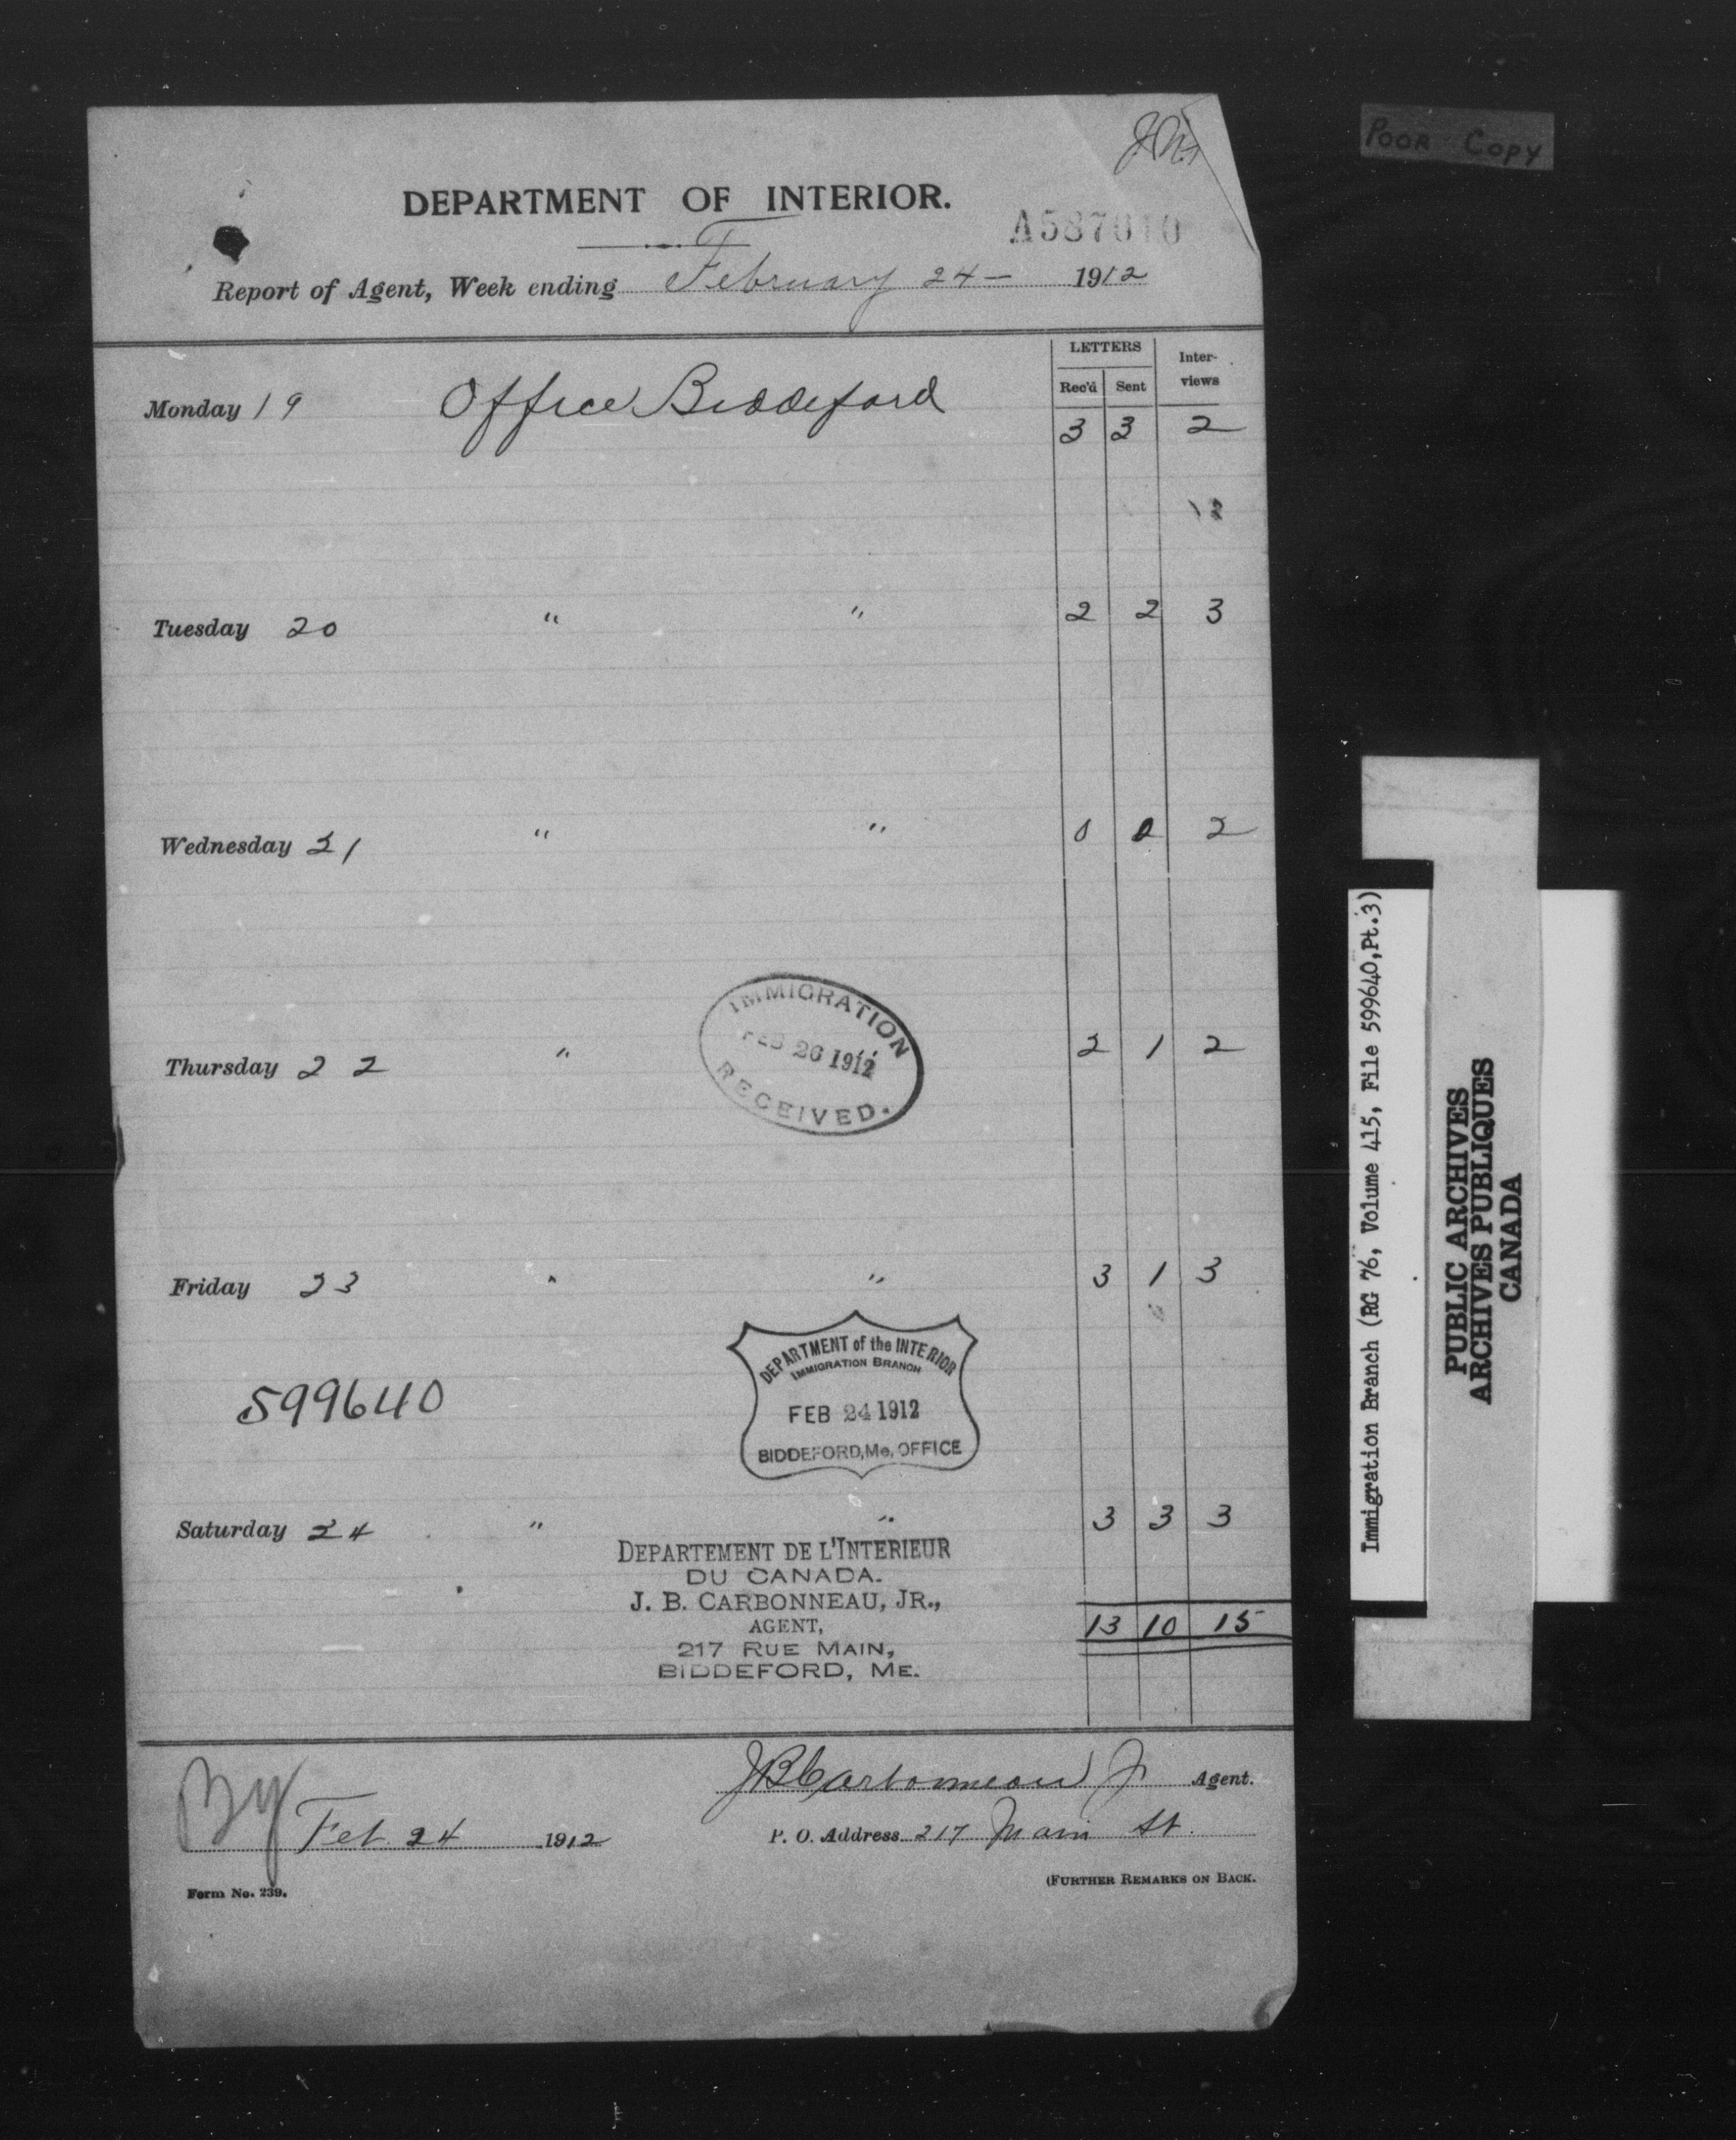 POOR COPY
DEPARTMENT OF INTERIOR.
A587010
Report of Agent, Week ending February 24 – 1912
LETTERS Inter-views
Rec'd Sent
Monday 19 Office Biddeford 3 3 2
Tuesday 20 " " 2 2 3
Wednesday 21 " " 0 0 2
IMMIGRATION
FEB 26 1912
RECEIVED.
Thursday 22 " 2 1 2
Friday 23 " " 3 1 3
DEPARTMENT of the INTERIOR
IMMIGRATION BRANCH
FEB 24 1912
BIDDEFORD, Me, OFFICE
599640
Saturday 24 " " 3 3 3
DEPARTEMENT DE L'INTERIEUR
DU CANADA.
J. B. CARBONNEAU, JR.,
AGENT,
217 RUE MAIN,
BIDDEFORD, ME.
13 10 15
JB Carbonneau Jr Agent.
Feb 24 1912 P. O. Address 217 Main St.
Form No. 239. (FURTHER REMARKS ON BACK.
Immigration Branch (RG 76, Volume 415, File 599640,Pt.3)
PUBLIC ARCHIVES
ARCHIVES PUBLIQUES
CANADA